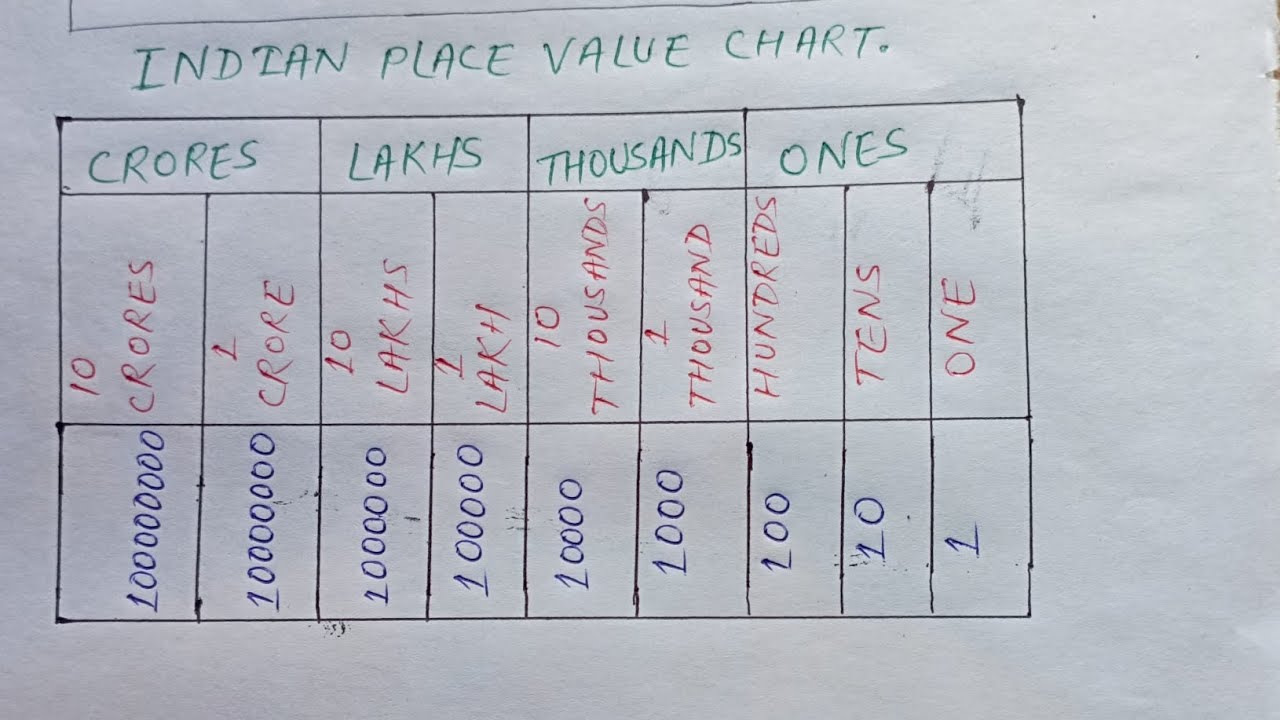 INDIAN PLACE VALUE CHART.
CRORES LAKHS THOUSANDS ONES
10 CRORES 1 CRORE 10 LAKHS 1 LAKH 10 THOUSANDS 1 THOUSAND HUNDREDS TENS ONE
100000000 10000000 1000000 100000 10000 1000 100 10 1